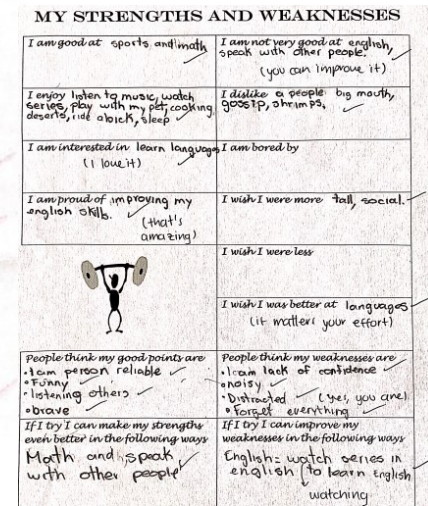 MY STRENGTHS AND WEAKNESSES
I am good at sports and math
I am not very good at english,
speak with other people.
(you can improve it)
I enjoy listen to music, watch
series, play with my pet, cooking
deserts, ride a bick, sleep
I dislike a people big mouth,
gossip, shrimps.
I am interested in learn languages
(I love it)
I am bored by
I am proud of improving my
english skills.
(that's
amazing)
I wish I were more tall, social.
I wish I were less
I wish I was better at languages
(it matters your effort)
People think my good points are
• I am person reliable
• Funny
• listening others
• brave
People think my weaknesses are
• I am lack of confidence
• noisy
• Distracted (yes, you are)
• Forget everything
If I try I can make my strengths
even better in the following ways
Math and speak
with other people
If I try I can improve my
weaknesses in the following ways
English = watch series in
english (to learn English
watching